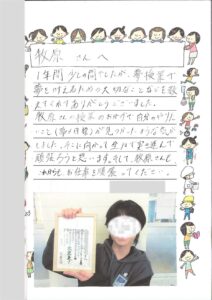 牧原 さんへ
1年間少しの間でしたが、夢授業で
夢を叶えるための大切なことなどを教
えてくれてありがとうございました。
牧原さんの授業のおかげで自分のやりた
いこと（夢や目標）が見つかったような気が
しました。それに向かって生けて突き進んで
頑張ろうと思います。そして、牧原さんも、
お仕事を頑張ってください。